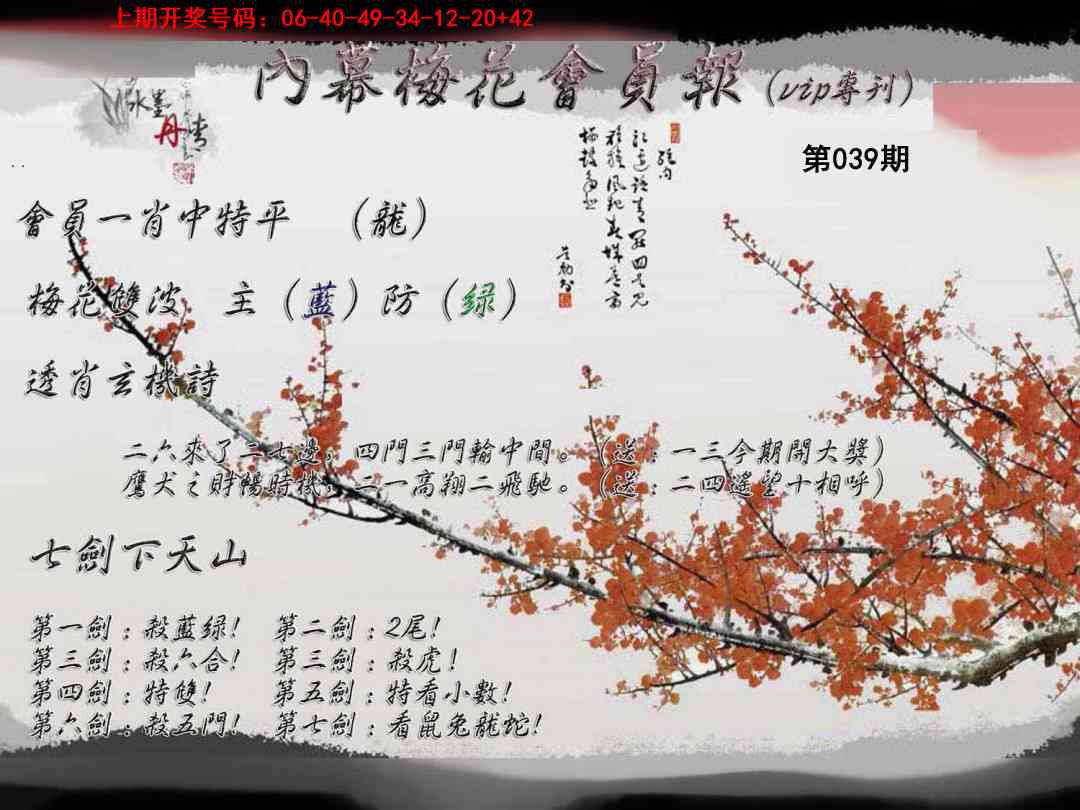 上期开奖号码：06-40-49-34-12-20+42
內幕梅花會員報(vip專刊)
水墨
丹青
第039期
會員一肖中特平 （龍）
梅花雙波 主（藍）防（绿）
透肖玄機詩
二六來了二七邊，四門三門輪中間。（送：一三今期開大獎）
鷹犬之時暢時機，二一高翔二飛馳。（送：二四遙望十相呼）
七劍下天山
第一劍：殺藍绿！ 第二劍：2尾！
第三劍：殺六合！ 第三劍：殺虎！
第四劍：特雙！ 第五劍：特看小數！
第六劍：殺五門！ 第七劍：看鼠兔龍蛇！